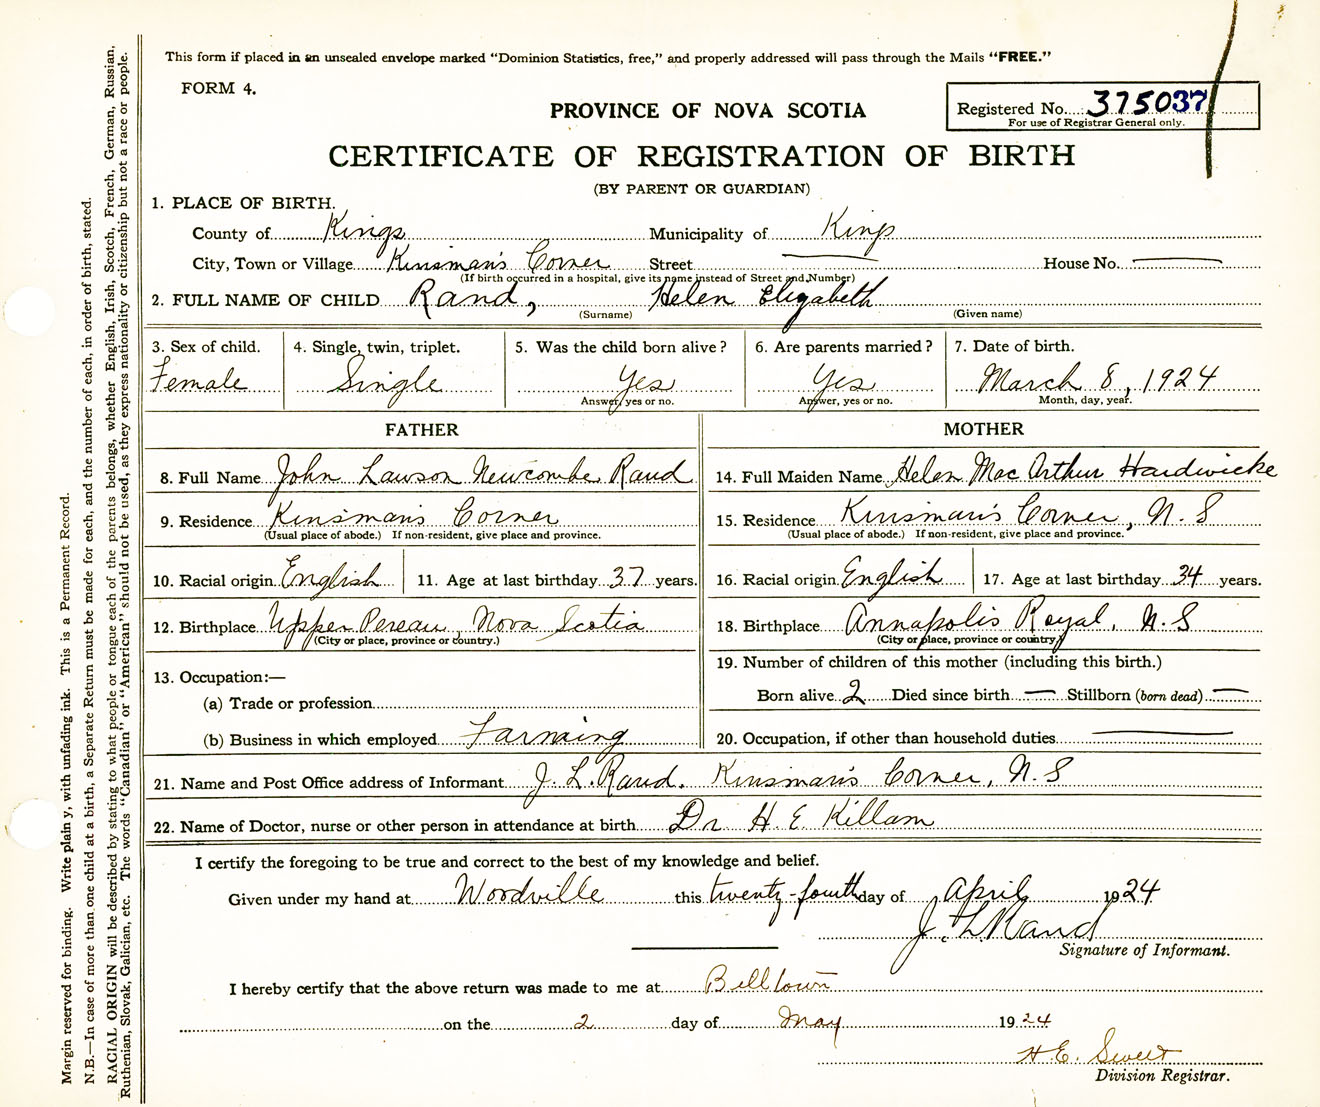 This form if placed in an unsealed envelope marked "Dominion Statistics, free," and properly addressed will pass through the Mails "FREE."
FORM 4.
Registered No. 375037
For use of Registrar General only.
PROVINCE OF NOVA SCOTIA
CERTIFICATE OF REGISTRATION OF BIRTH
(BY PARENT OR GUARDIAN)
1. PLACE OF BIRTH.
County of Kings Municipality of Kings
City, Town or Village Kinsman's Corner Street — House No. —
(If birth occurred in a hospital, give its name instead of Street and Number)
2. FULL NAME OF CHILD Rand, Helen Elizabeth
(Surname) (Given name)
3. Sex of child. 4. Single, twin, triplet. 5. Was the child born alive? 6. Are parents married? 7. Date of birth.
Female Single Yes Yes March 8, 1924
Answer, yes or no. Answer, yes or no. Month, day, year.
FATHER MOTHER
8. Full Name John Lawson Newcombe Rand 14. Full Maiden Name Helen Mac Arthur Hardwicke
9. Residence Kinsman's Corner 15. Residence Kinsman's Corner, N.S
(Usual place of abode.) If non-resident, give place and province. (Usual place of abode.) If non-resident, give place and province.
10. Racial origin English 11. Age at last birthday 37 years. 16. Racial origin English 17. Age at last birthday 34 years.
12. Birthplace Upper Pereau, Nova Scotia 18. Birthplace Annapolis Royal, N.S
(City or place, province or country.) (City or place, province or country)
13. Occupation:— 19. Number of children of this mother (including this birth.)
(a) Trade or profession Born alive 2 Died since birth — Stillborn (born dead) —
(b) Business in which employed Farming 20. Occupation, if other than household duties —
21. Name and Post Office address of Informant J. L. Rand. Kinsman's Corner, N.S
22. Name of Doctor, nurse or other person in attendance at birth Dr H. E. Killam
I certify the foregoing to be true and correct to the best of my knowledge and belief.
Given under my hand at Woodville this twenty-fourth day of April 1924
J. L Rand
Signature of Informant.
I hereby certify that the above return was made to me at Billtown
on the 2 day of May 1924
H. E. Sweet
Division Registrar.
Margin reserved for binding. Write plain y, with unfading ink. This is a Permanent Record.
N.B.—In case of more than one child at a birth, a Separate Return must be made for each, and the number of each, in order of birth, stated.
RACIAL ORIGIN will be described by stating to what people or tongue each of the parents belongs, whether English, Irish, Scotch, French, German, Russian,
Ruthenian, Slovak, Galician, etc. The words "Canadian" or "American" should not be used, as they express nationality or citizenship but not a race or people.